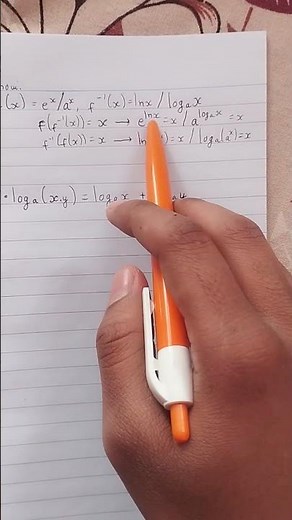 now.
(x) = eˣ/aˣ, f⁻¹(x) = lnx / logₐx
f(f⁻¹(x)) = x → e^lnx = x / a^logₐx = x
f⁻¹(f(x)) = x → ln = x / logₐ(aˣ) = x
• logₐ(x.y) = logₐx +